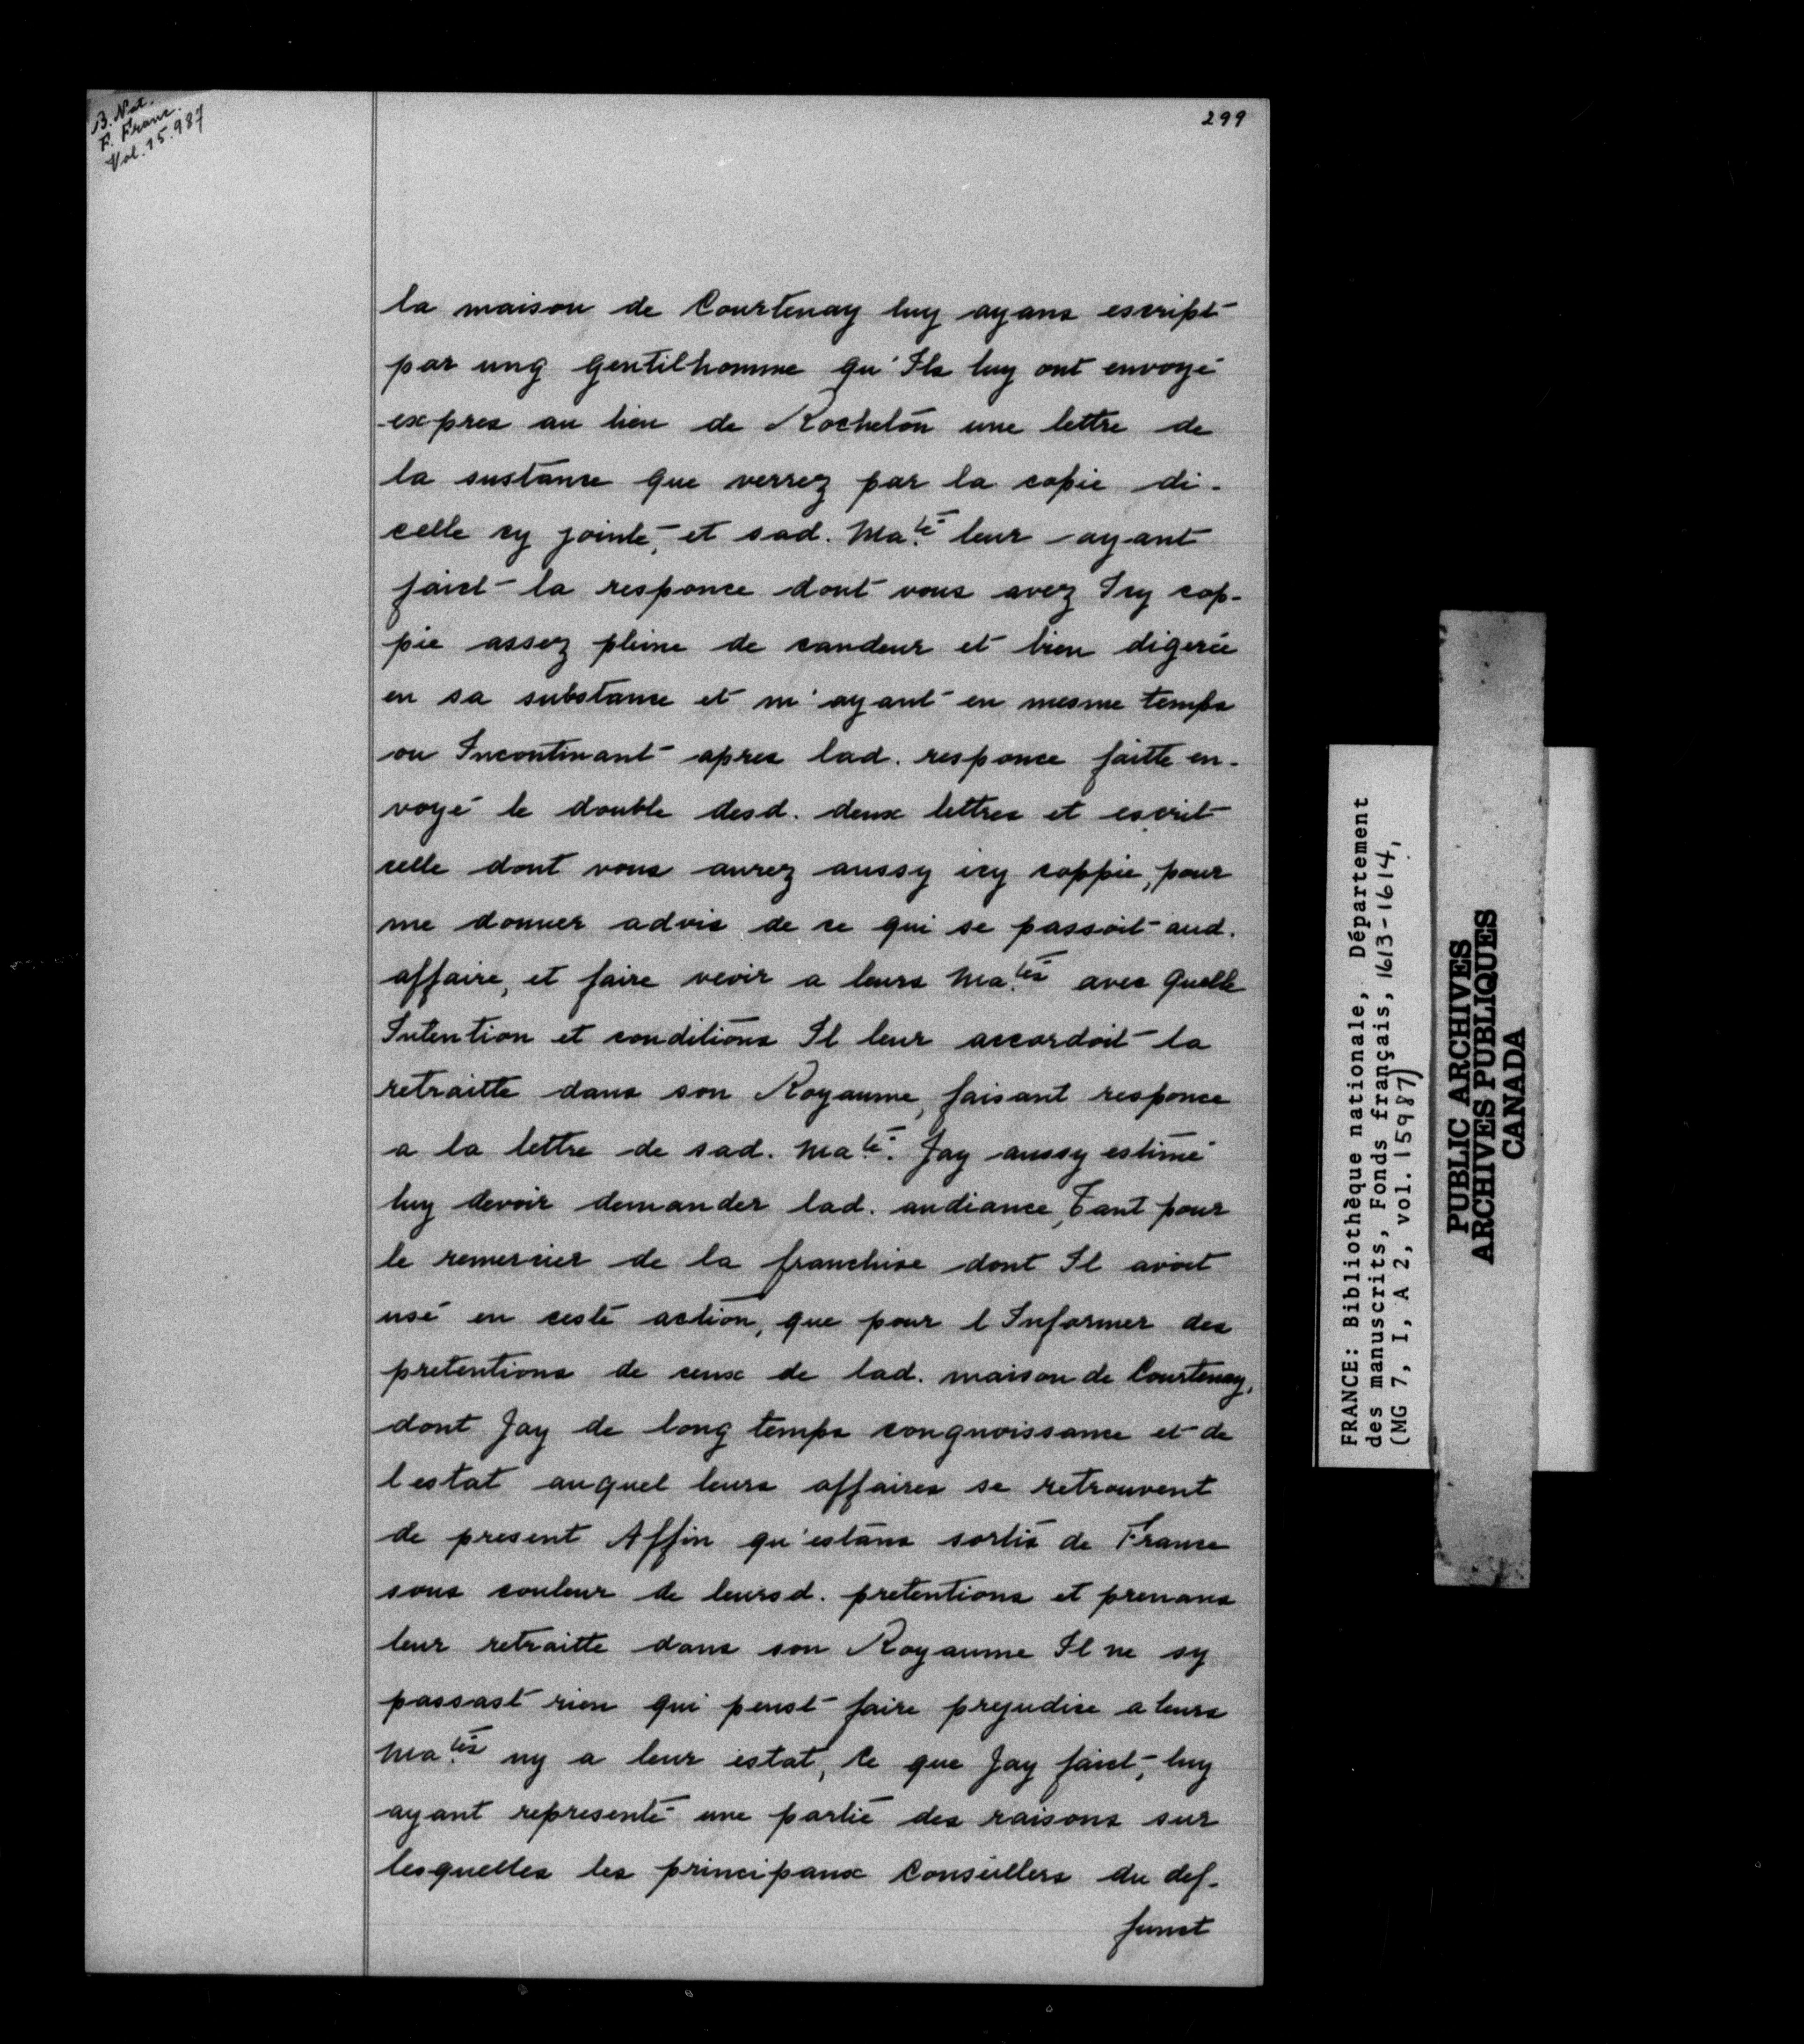 B. Nat.
F. Franc.
Vol. 15.987
299
la maison de Courtenay luy ayans escript
par ung gentilhomme qu'Ils luy ont envoyé
expres au lieu de Rochelon une lettre de
la sustance que verrez par la copie di-
celle cy jointe, et sad. Ma.té leur ayant
faict la responce dont vous avez Icy cop-
pie assez pleine de candeur et bien digerée
en sa substance et m'ayant en mesme temps
ou Incontinant apres lad. responce faitte en-
voyé le double desd. deux lettres et escrit
celle dont vous aurez aussy icy coppie, pour
me donner advis de ce qui se passoit aud.
affaire, et faire veoir a leurs Ma.tés avec quelle
Intention et conditions Il leur accordoit la
retraitte dans son Royaume, faisant responce
a la lettre de sad. Ma.té. Jay aussy estimé
luy devoir demander lad. audiance, Tant pour
le remercier de la franchise dont Il avoit
usé en ceste action, que pour l Informer des
pretentions de ceux de lad. maison de Courtenay,
dont Jay de long temps congnoissance et de
l estat auquel leurs affaires se retrouvent
de present Affin qu'estans sortis de France
sous couleur de leursd. pretentions et prenans
leur retraitte dans son Royaume Il ne sy
passast rien qui peust faire prejudice a leurs
Ma.tés ny a leur estat, Ce que Jay faict, luy
ayant representé une partie des raisons sur
lesquelles les principaux Conseillers du def-
funct
FRANCE: Bibliothèque nationale, Département
des manuscrits, Fonds français, 1613-1614,
(MG 7, I, A 2, vol. 15987)
PUBLIC ARCHIVES
ARCHIVES PUBLIQUES
CANADA